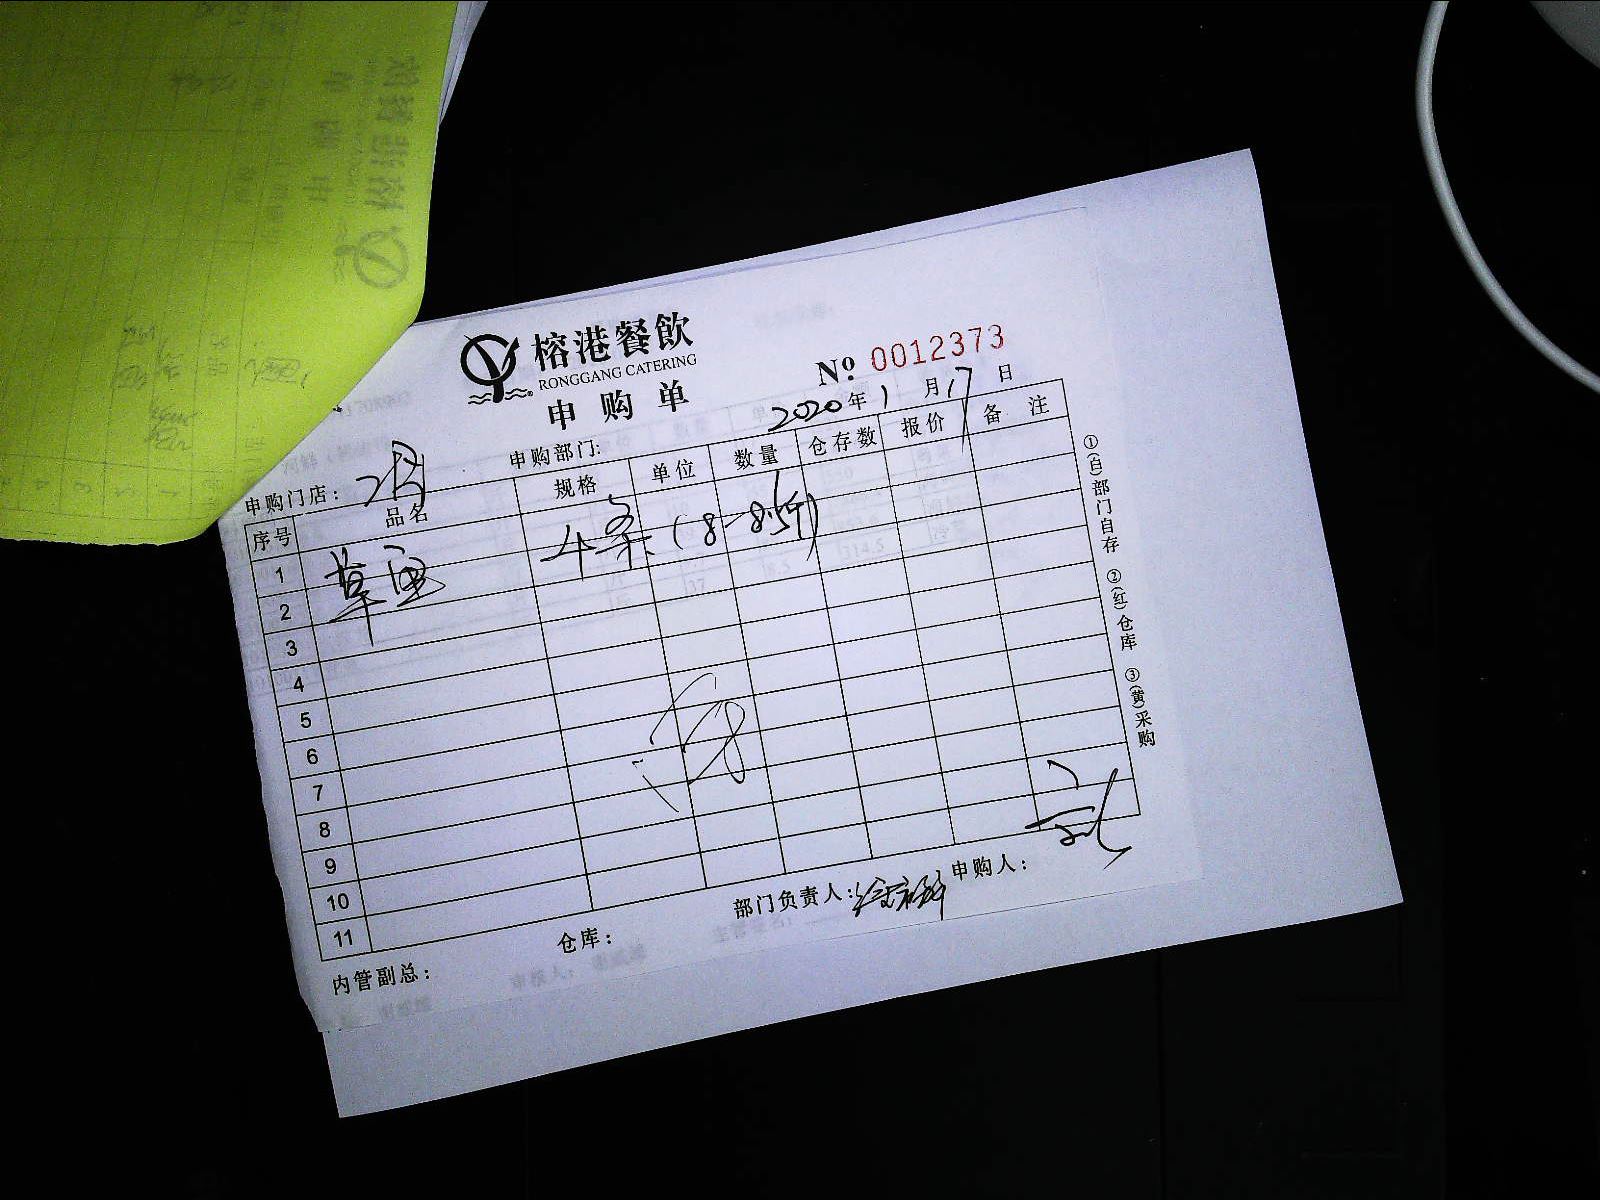 榕港餐飲
RONGGANG CATERING
申购单
№ 0012373
2020年1月17日
申购门店：
申购部门：
序号 品名 规格 单位 数量 仓存数 报价 备注
1 草鱼 4条（8-8.5斤）
2
3
4
5
6
7
8
9
10
11
①(白)部门自存 ②(红)仓库 ③(黄)采购
内管副总： 仓库： 部门负责人： 申购人：